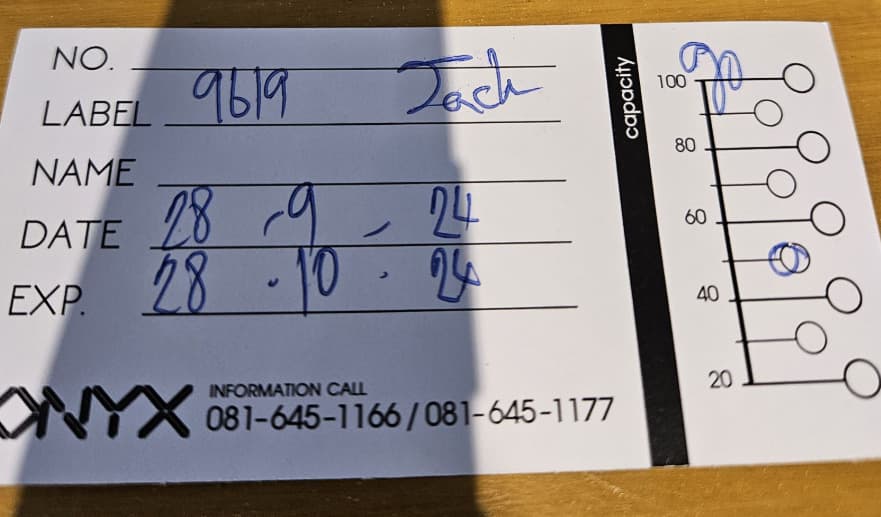 NO.
LABEL 9619 Jach
NAME
DATE 28 - 9 - 24
EXP. 28 . 10 . 24
ONYX
INFORMATION CALL
081-645-1166 / 081-645-1177
capacity
100
80
60
40
20